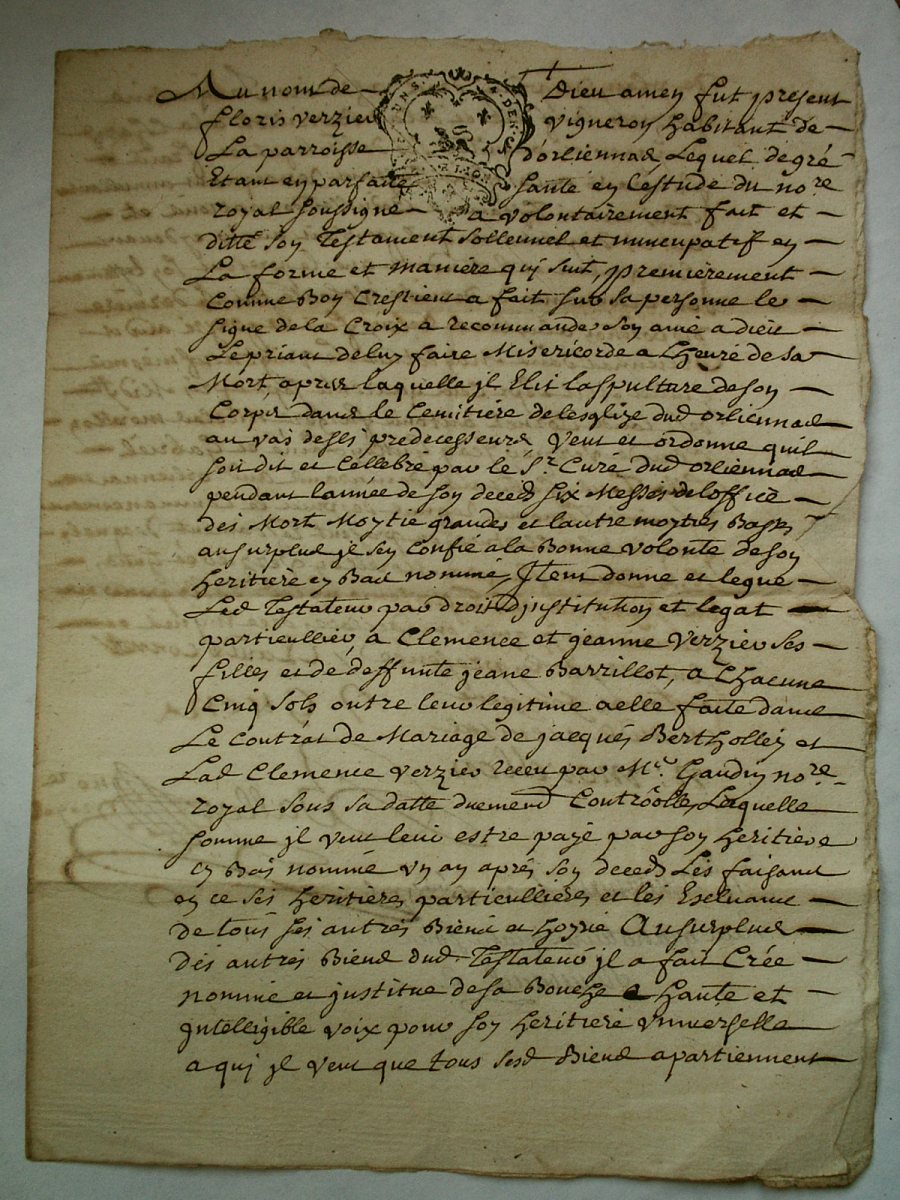 Au nom de Dieu amen fut present
floris verzieu vigneron habitant de
La parroisse d'orliennas Lequel de gré
Etant en parfaite santé en L'estude du no.re
royal soussigne a volontairement fait et
ditté son Testament sollennel et nuncupatif en
La forme et maniere quj suit, premierement
comme Bon Crestient a fait sur sa personne le
signe de la Croix a recommande son ame a dieu
Le priant de luy faire Misericorde a L'heure de sa
Mort, apres laquelle jl Elit la spulture de son
Corps dans le Cemitiére de lesglize dud orliennas
au vas de ses predecesseurs, veut et ordonne quil
soit dit et Cellebré par le S.r Curé dud orliennas
pendant l'année de son deceds six Messes de l'office
des Mort Moytie grandes et lautre moytiés Basses
au surplus je sen Confie a la Bonne volonte de son
heritiere en Bas nommé, Jtem donne et legue
Led Testateur par droit d'jnstitution et legat
particullier, a Clemence et jeanne verzieu ses
filles et de deffunte jeane Barrillot, a Chacune
Cinq sols outre leur legitime a elle faite dans
Le Contrat de Mariage de jacques Bertholley et
Lad Clemence verzieu receu par M.e Gaudin no.re
royal sous sa datte duement Controolle, Laquelle
somme jl veut leur estre payé par son heritiere
en Bas nommé vn an aprés son deceds Les faisant
en ce ses heritieres particullieres et les Excluant
de tous ses autres Biens et hoyrie Au surplus
des autres Biens dud Testateur jl a fait Crée
nomme et jnstitue de sa Bouche a haute et
jntelligible voix pour son heritiere vniverselle
a quj jl veut que tous sesd Biens apartiennent